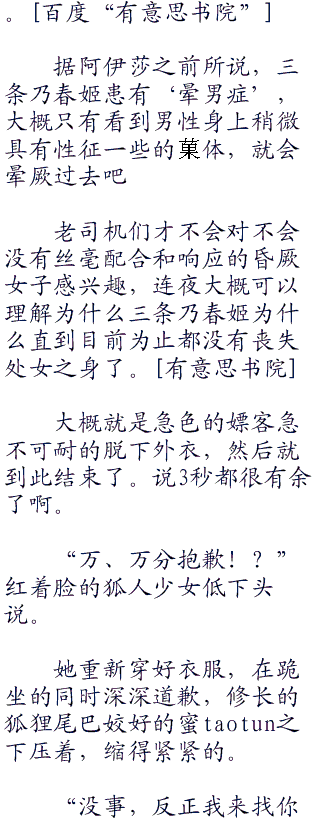 。[百度“有意思书院”]
据阿伊莎之前所说，三
条乃春姬患有‘晕男症’，
大概只有看到男性身上稍微
具有性征一些的菓体，就会
晕厥过去吧
老司机们才不会对不会
没有丝毫配合和响应的昏厥
女子感兴趣，连夜大概可以
理解为什么三条乃春姬为什
么直到目前为止都没有丧失
处女之身了。[有意思书院]
大概就是急色的嫖客急
不可耐的脱下外衣，然后就
到此结束了。说3秒都很有余
了啊。
“万、万分抱歉！？”
红着脸的狐人少女低下头
说。
她重新穿好衣服，在跪
坐的同时深深道歉，修长的
狐狸尾巴姣好的蜜taotun之
下压着，缩得紧紧的。
“没事，反正我来找你